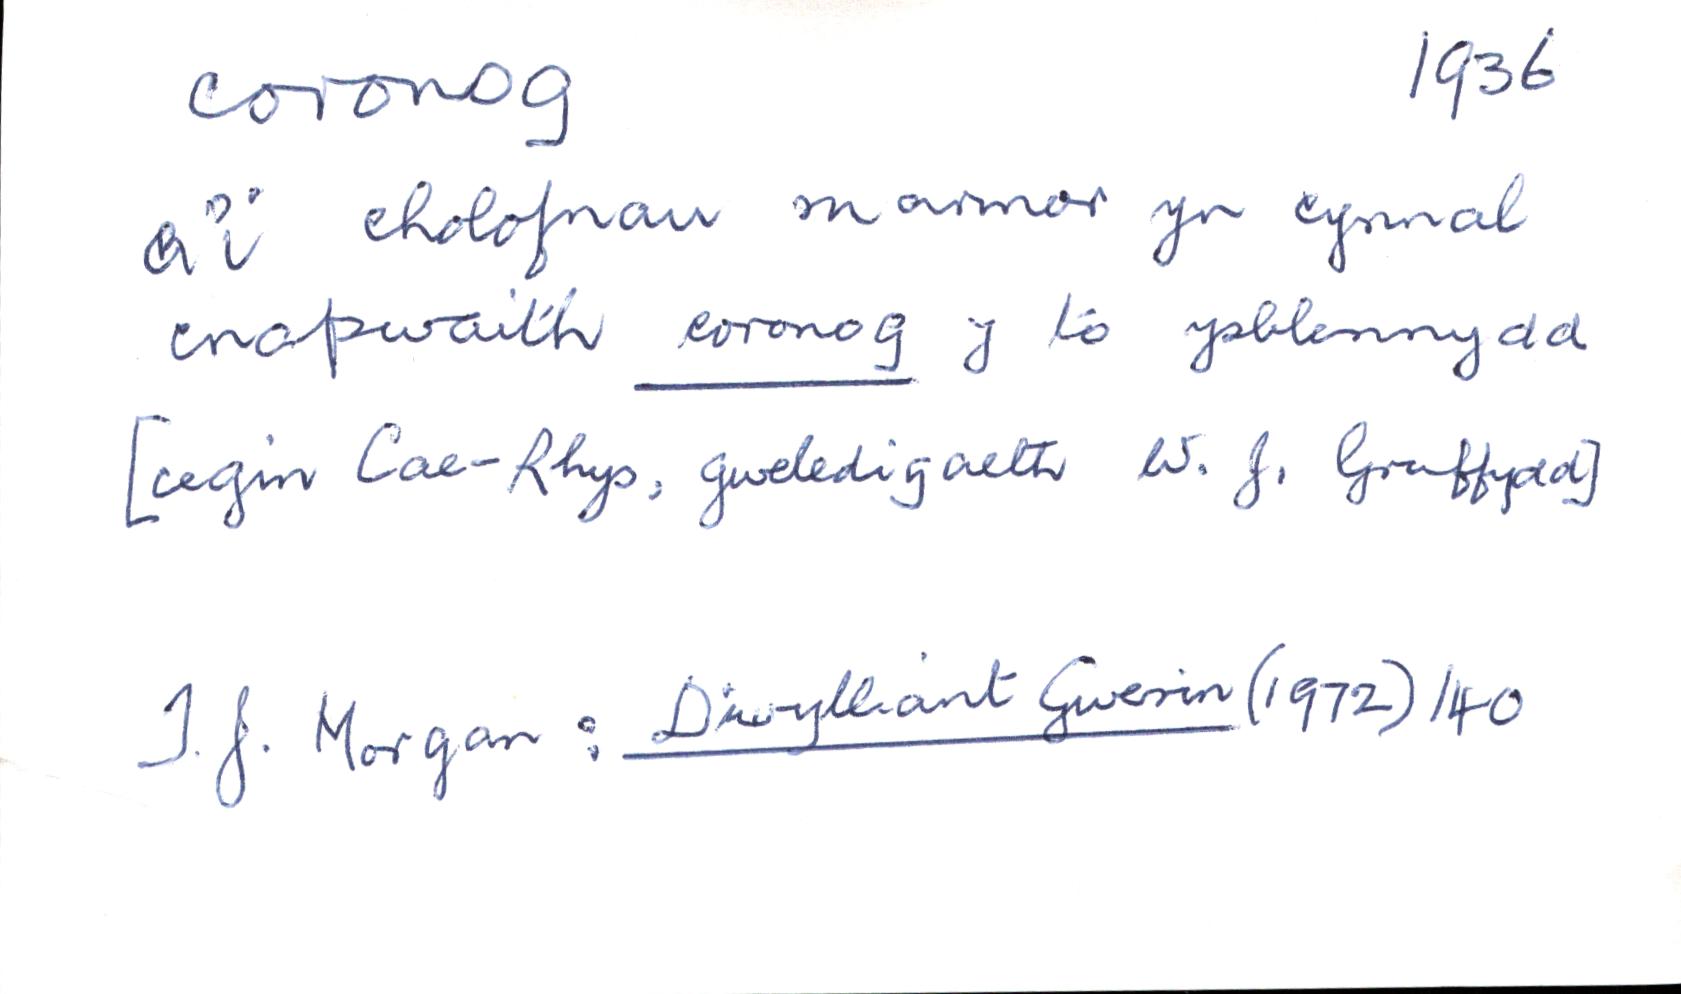 coronog 1936
a'i cholofnau marmor yn cynnal
cnapwaith coronog y to ysblennydd
[cegin Cae-Rhys, gweledigaeth W. J. Gruffydd]
T. J. Morgan: Diwylliant Gwerin (1972) 140